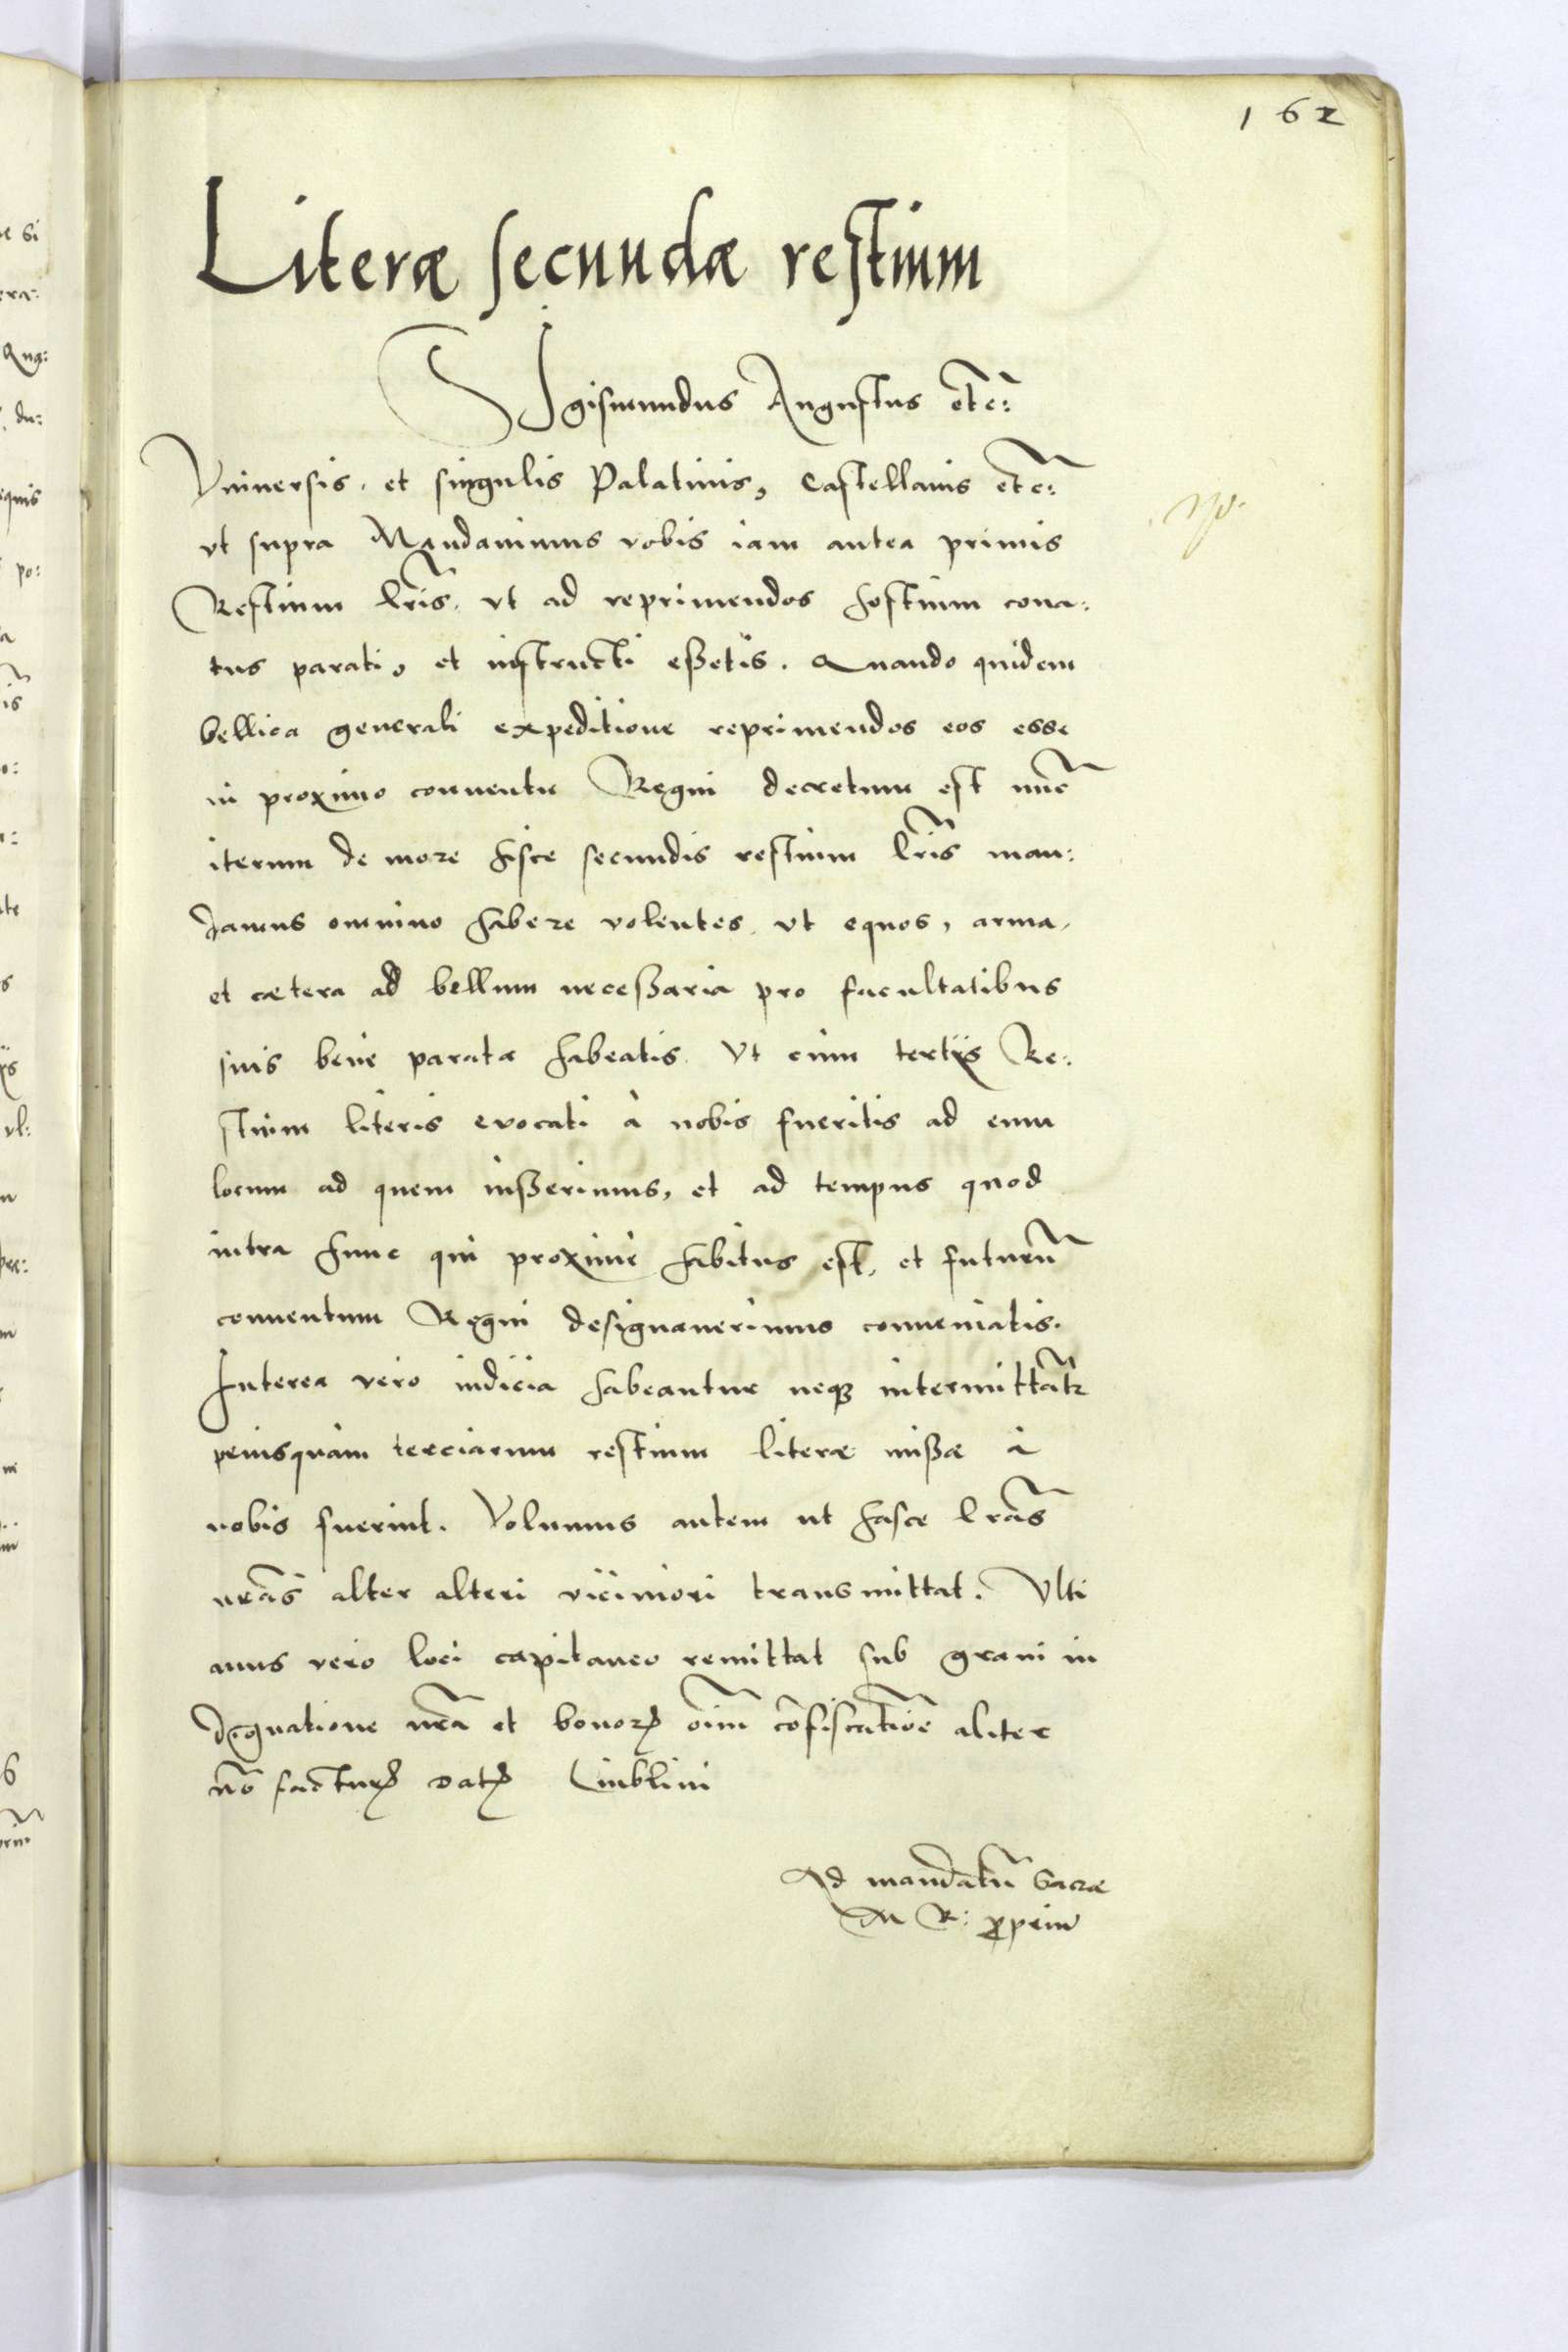 162
Literæ secundæ restium
SIgismundus Augustus etc̃:
Vniuersis, et singulis Palatinis, Castellanis etc̃:
vt supra Mandauimus vobis iam antea primis
Restium lr̃is, vt ad reprimendos hostium cona:
tus parati, et instructi eßetis. Quando quidem
bellica generali expeditione reprimendos eos esse
in proximo conuentu Regni decretum est nũc
iterum de more hisce secundis restium lr̃is man:
damus omnino habere volentes, vt equos, arma,
et cætera ad bellum neceßaria pro facultatibus
suis bene parata habeatis. Vt cum tertijs Re:
stium literis euocati à nobis fueritis ad eum
locum ad quem iußerimus, et ad tempus quod
intra hunc qui proxime habitus est, et futurũ
conuentum Regni designauerimus conueniatis.
Interea vero iudicia habeantur neqz intermittãtr
priusquam terciarum restium literæ mißæ à
nobis fuerint. Volumus autem ut hasce lr̃as
nr̃as alter alteri viciniori transmittat. Vlti
mus vero loci capitaneo remittat sub graui in
dignatione nr̃a et bonorꝝ oĩm cõfiscatiõe aliter
nõ facturꝰ datꝰ Liublini
Ad mandatũ Sacræ
M R: ꝓpriũ